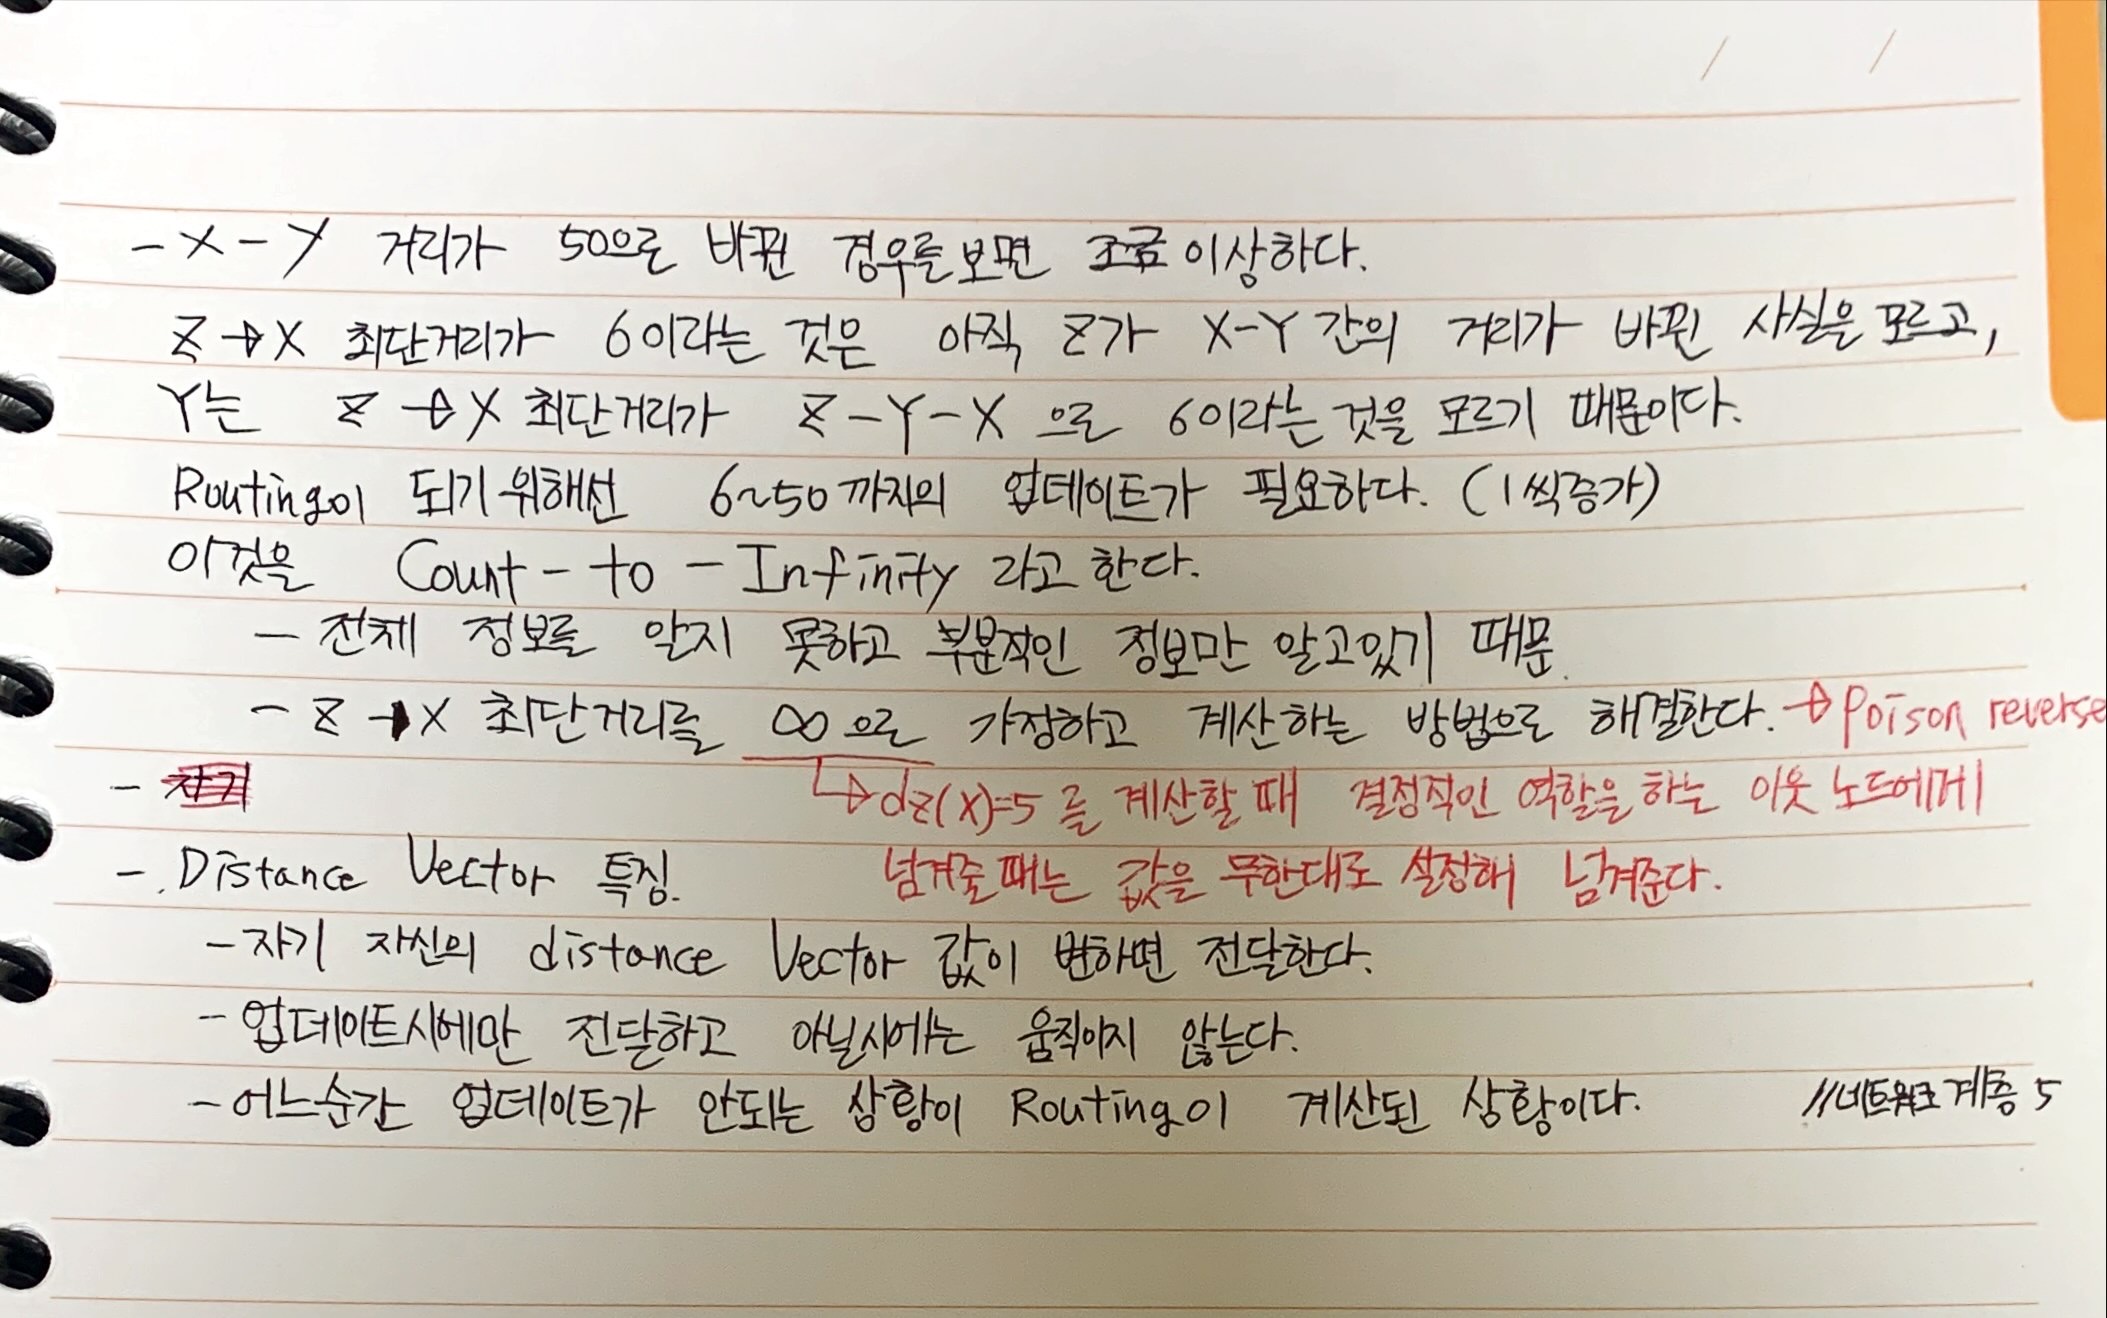 - X - Y 거리가 50으로 바뀐 경우를 보면 조금 이상하다.
Z → X 최단거리가 6이라는 것은 아직 Z가 X-Y 간의 거리가 바뀐 사실을 모르고,
Y는 Z → X 최단거리가 Z - Y - X 으로 6이라는 것을 모르기 때문이다.
Routing이 되기 위해선 6~50까지의 업데이트가 필요하다. (1씩증가)
이것을 Count - to - Infinity 라고 한다.
- 전체 정보를 알지 못하고 부분적인 정보만 알고있기 때문.
- Z → X 최단거리를 ∞으로 가정하고 계산하는 방법으로 해결한다. → Poison reverse
- 자기
↳ dz(x)=5 를 계산할 때 결정적인 역할을 하는 이웃 노드에게
넘겨줄 때는 값을 무한대로 설정해 넘겨준다.
- Distance Vector 특징.
- 자기 자신의 distance Vector 값이 변하면 전달한다.
- 업데이트시에만 전달하고 아닐시에는 움직이지 않는다.
- 어느순간 업데이트가 안되는 상황이 Routing이 계산된 상황이다.
//네트워크 계층 5